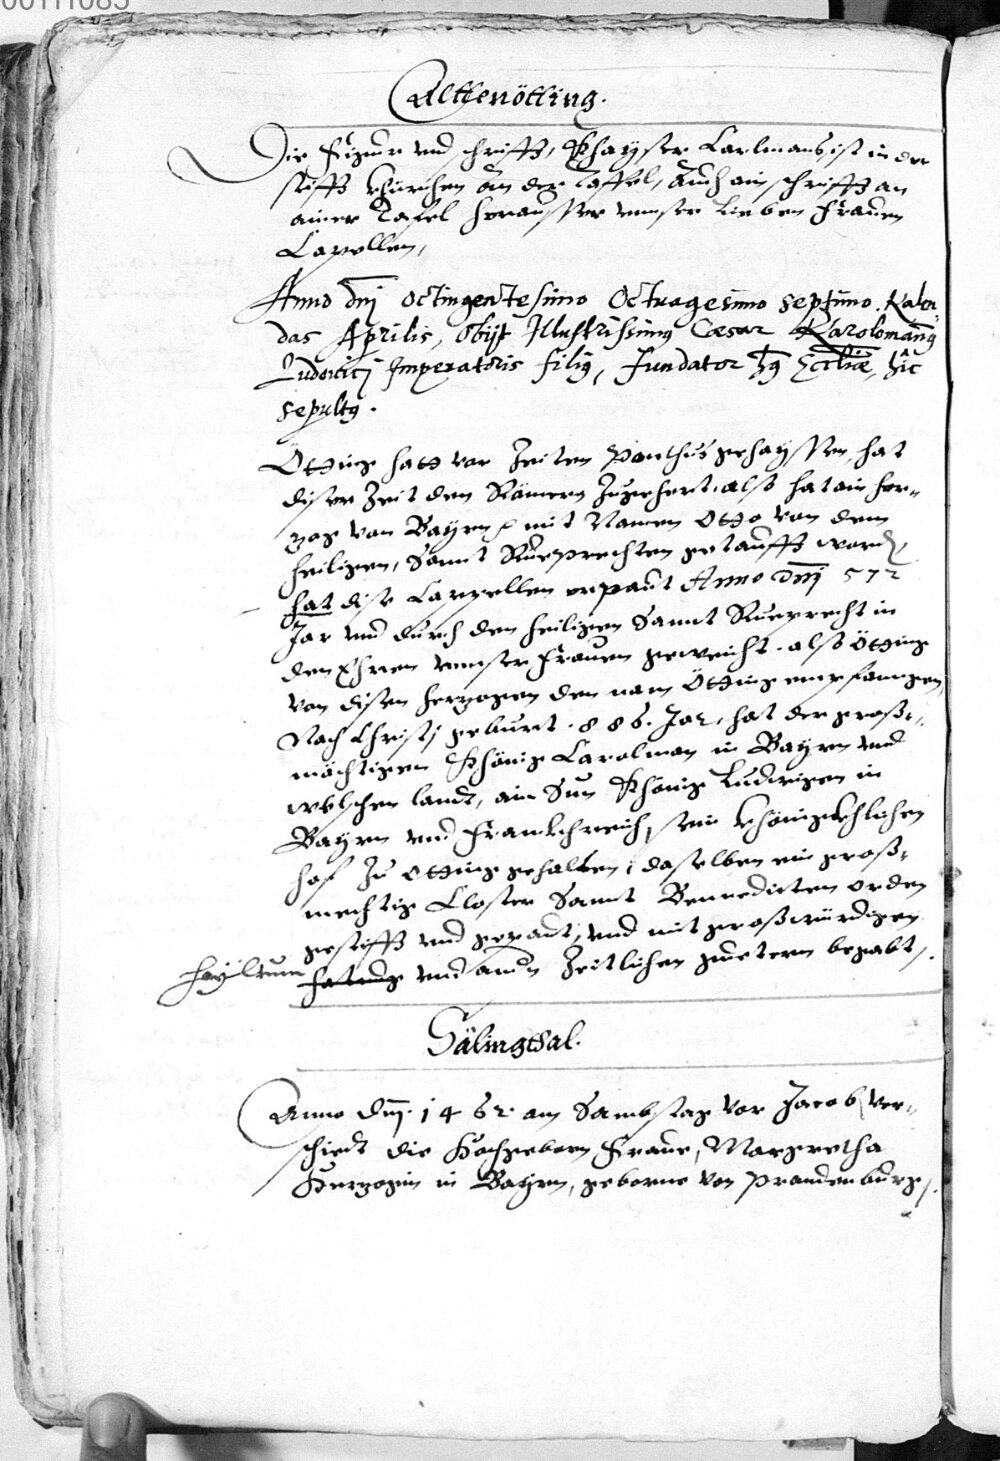 00111085
Alttenötting.
Die Figur vnd schrifft, Khayser Carlmans ist in der
stifft khürchen an der Taffel, Auch ain schrifft an
ainer Tafel heraussen vnnser lieben Frauen
Capellen,
Anno dnj octingentesimo Octuagesimo septimo. Kalen-
das Aprilis, obijt Illustrissimus Cæsar Karolomanus
Ludouicj Imperatoris filius, Fundator hus Eccliæ, hîc
sepultus.
Ötting hatt vor Zeiten Ponthus gehayssen, hat
diser Zeit den Römern Zugehert. also hat ain her-
zog von Bayrn mit Namen Otto von dem
heiligen, Sannt Rueprechten getaufft word,
hat dise Cappellen erpaut Anno dnj 572
Jar vnd durch den heiligen Sannt Rueprecht in
den Ehren vnnser Frauen geweicht. also Ötting
von disen herzogen den nam Ötting empfanngen,
Nach Christj geburt. 886. Jar, hat der groß-
mächtigen Khönig Carolman in Bayrn vnd
welschen landt, ain Sun Khönig Ludwigen in
Bayrn vnd Franckhreich, sein khönigckhlichen
hof Zu Otting gehalten, daselben ein groß-
mechtig Closter Sannt Bennedicten orden
gestifft vnd gepaut, vnd mit groswürdigen
hayltum hatung vnd andn Zeitlichen guetern begabt,
Sälingthal.
Anno dnj. 1462. am Sambstag vor Jacobj ver-
schiedt die Hochgeborn Fraue, Margretha
Hertzogin in Bayrn, geborne von Prandenburg,